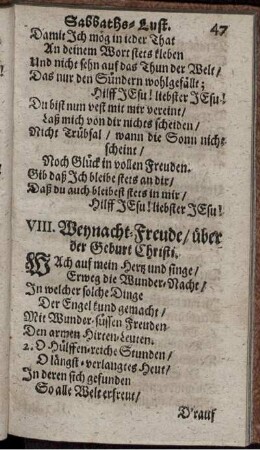 Sabbaths-Lust. 47
Damit Ich mög in ieder That
An deinem Wort stets kleben
Und nicht sehn auf das Thun der Welt/
Das nur den Sündern wohlgefällt;
Hilff JEsu! liebster JEsu!
Du bist nun vest mit mir vereint/
Laß mich von dir nichts scheiden/
Nicht Trübsal/ wann die Sonn nicht
scheine/
Noch Glück in vollen Freuden.
Gib daß Ich bleibe stets an dir/
Daß du auch bleibest stets in mir/
Hilff JEsu! liebster JEsu!
VIII. Weynacht-Freude/ über
der Geburt Christi.
WAch auf mein Hertz und singe/
Erweg die Wunder-Nacht/
In welcher solche Dinge
Der Engel kund gemacht/
Mit Wunder-süssen Freuden
Den armen Hirten-Leuten.
2. O Hülffen-reiche Stunden/
O längst-verlangtes Heut/
In deren sich gefunden
So alle Welt erfreut/
D'rauf